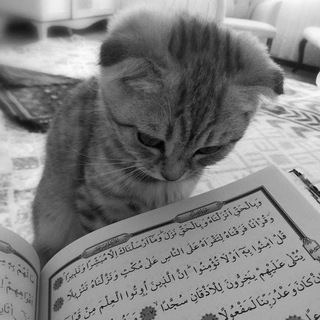 وَبِالْحَقِّ اَنْزَلْنَاهُ وَبِالْحَقِّ نَزَلَ وَمَٓا اَرْسَلْنَاكَ اِلَّا مُبَشِّرًا وَنَذِيرًا
وَقُرْاٰنًا فَرَقْنَاهُ لِتَقْرَاَهُ عَلَى النَّاسِ عَلٰى مُكْثٍ وَنَزَّلْنَاهُ تَنْزِيلًا
قُلْ اٰمِنُوا بِهِٓ اَوْ لَا تُؤْمِنُوا اِنَّ الَّذِينَ اُوتُوا الْعِلْمَ مِنْ قَبْلِهِٓ
يُتْلٰى عَلَيْهِمْ يَخِرُّونَ لِلْاَذْقَانِ سُجَّدًا
اِنْ كَانَ وَعْدُ رَبِّنَا لَمَفْعُولًا